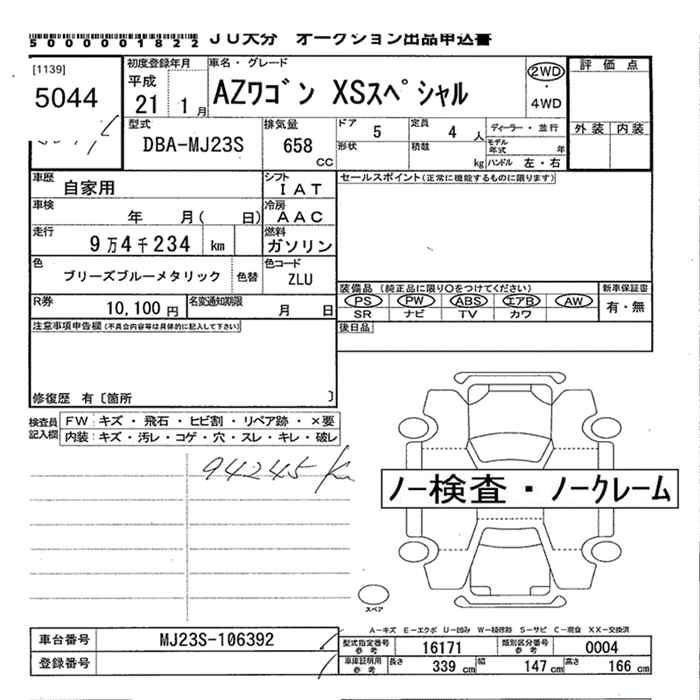 5000001822 JU大分 オークション出品申込書
[1139]
5044
初度登録年月
平成
21 1月
車名・グレード
AZワゴン XSスペシャル
2WD
・
4WD
評価点
外装 内装
型式
DBA-MJ23S
排気量
658 CC
ドア 5
定員 4 人
ディーラー・並行
形状
積載 kg
モデル年式 年
ハンドル 左・右
車歴 自家用
シフト IAT
セールスポイント(正常に機能するものに限ります)
車検 年 月( 日)
冷房 AAC
走行 9万4千234 km
燃料 ガソリン
色 ブリーズブルーメタリック 色替
色コード ZLU
装備品 (純正品に限り○をつけてください)
新車保証書
PS PW ABS エアB AW
有・無
SR ナビ TV カワ
R券 10,100 円
名変通知期限 月 日
後日品
注意事項申告欄(不具合内容等は具体的に記入して下さい)
修復歴 有〔箇所 〕
検査員記入欄
FW:キズ・飛石・ヒビ割・リペア跡・×要
内装:キズ・汚レ・コゲ・穴・スレ・キレ・破レ
94245 Km
ノー検査・ノークレーム
スペア
A−キズ E−エクボ U−凹み W−補修跡 S−サビ C−腐食 XX−交換済
車台番号 MJ23S-106392
型式指定番号 参考 16171
類別区分番号 参考 0004
登録番号
車庫証明用 参考 長さ 339 cm 幅 147 cm 高さ 166 cm